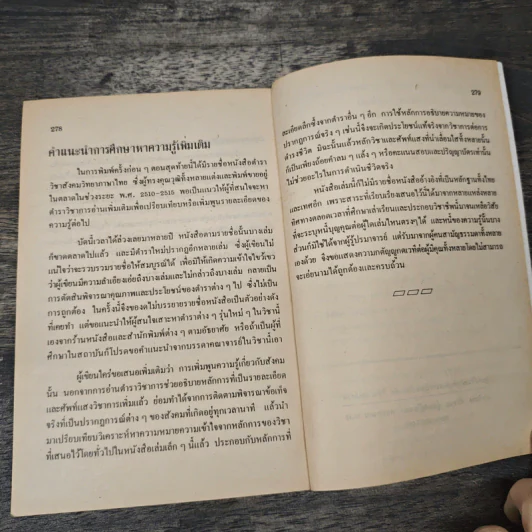 278
คำแนะนำการศึกษาหาความรู้เพิ่มเติม
ในการพิมพ์ครั้งก่อน ๆ ตอนสุดท้ายนี้ได้มีรายชื่อหนังสือตำรา
วิชาสังคมวิทยาภาษาไทย ซึ่งผู้ทรงคุณวุฒิทั้งหลายแต่งและพิมพ์ขายอยู่
ในตลาดในช่วงระยะ พ.ศ. 2510-2515 พอเป็นแนวให้ผู้สนใจจะหา
ตำราวิชาการอ่านเพิ่มเติมเพื่อเปรียบเทียบหรือเพิ่มพูนรายละเอียดของ
ความรู้
บัดนี้เวลาได้ล่วงเลยมาหลายปี หนังสือตามรายชื่อนั้นบางเล่ม
ก็ขาดตลาดไปแล้ว และมีตำราใหม่ปรากฏอีกหลายเล่ม ซึ่งผู้เขียนไม่
แน่ใจว่าจะรวบรวมรายชื่อให้สมบูรณ์ได้ เพื่อมิให้เกิดความเข้าใจไขว้เขว
ว่าผู้เขียนมีความลำเอียงเอ่ยถึงบางเล่มและไม่กล่าวถึงบางเล่ม กลายเป็น
การตัดสินพิจารณาคุณภาพและประโยชน์ของตำราต่าง ๆ ไป ซึ่งไม่เป็น
การถูกต้อง ในครั้งนี้จึงของดไม่บรรยายรายชื่อหนังสือเป็นตัวอย่างดัง
ที่เคยทำ แต่ขอแนะนำให้ผู้สนใจเสาะหาตำราต่าง ๆ รุ่นใหม่ ๆ ในวิชานี้
เองจากร้านหนังสือและสำนักพิมพ์ต่าง ๆ ตามอัธยาศัย หรือถ้าเป็นผู้ที่
ศึกษาในสถาบันก็โปรดขอคำแนะนำจากบรรดาคณาจารย์ในวิชานี้เอา
ผู้เขียนใคร่ขอเสนอเพิ่มเติมว่า การเพิ่มพูนความรู้เกี่ยวกับสังคม
นั้น นอกจากการอ่านตำราวิชาการช่วยอธิบายหลักการที่เป็นรายละเอียด
และศัพท์แสงวิชาการเพิ่มแล้ว ย่อมทำได้จากการติดตามพิจารณาข้อเท็จ
จริงที่เป็นปรากฏการณ์ต่าง ๆ ของสังคมที่เกิดอยู่ทุกเวลานาที แล้วนำ
มาเปรียบเทียบวิเคราะห์หาความหมายความเข้าใจจากหลักการของวิชา
ที่เสนอไว้โดยทั่วไปในหนังสือเล่มเล็ก ๆ นี้แล้ว ประกอบกับหลักการที่
279
ละเอียดลึกซึ้งจากตำราอื่น ๆ อีก การใช้หลักการอธิบายความหมายของ
ปรากฏการณ์จริง ๆ เช่นนี้จึงจะเกิดประโยชน์แท้จริงจากวิชาการต่อการ
ดำรงชีวิต มิฉะนั้นแล้วหลักวิชาและศัพท์แสงที่น่าเลื่อมใสทั้งหลายนั้น
ก็เป็นเพียงถ้อยคำลม ๆ แล้ง ๆ หรือคะแนนสอบและปริญญาบัตรเท่านั้น
ไม่ช่วยอะไรในการดำเนินชีวิตจริง
หนังสือเล่มนี้ก็ไม่มีรายชื่อหนังสืออ้างอิงที่เป็นหลักฐานทั้งไทย
และเทศอีก เพราะสาระที่เรียบเรียงเสนอไว้นี้ได้มาจากหลายแหล่งหลาย
ทิศทางตลอดเวลาที่ศึกษาเล่าเรียนและประกอบวิชาชีพนี้มาจนเหลือวิสัย
ที่จะระบุหนี้บุญคุณต่อผู้ใดเล่มไหนตรงไหนได้ และหนี้ของความรู้นั้นบาง
ส่วนก็มิใช่ได้จากผู้รู้ปรมาจารย์ แต่รับมาจากผู้คนสามัญธรรมดาทั้งหลาย
เองด้วย จึงขอแสดงความกตัญญูกตเวทีต่อผู้มีคุณทั้งหลายโดยไม่สามารถ
จะเอ่ยนามได้ถูกต้องและครบถ้วน